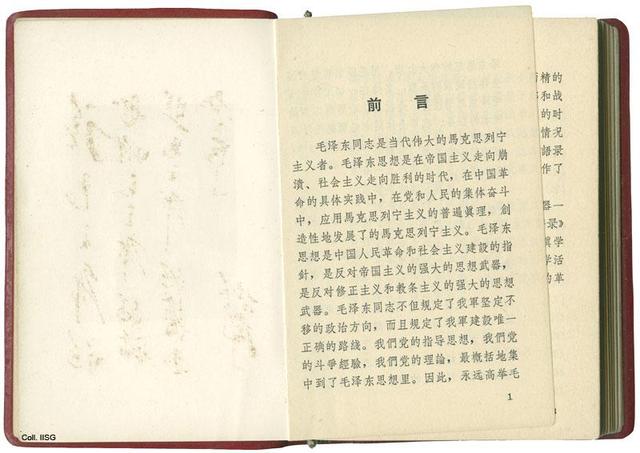 前 言
毛泽东同志是当代伟大的馬克思列宁
主义者。毛泽东思想是在帝国主义走向崩
溃、社会主义走向胜利的时代，在中国革
命的具体实践中，在党和人民的集体奋斗
中，应用馬克思列宁主义的普遍眞理，創
造性地发展了的馬克思列宁主义。毛泽东
思想是中国人民革命和社会主义建設的指
針，是反对帝国主义的强大的思想武器，
是反对修正主义和教条主义的强大的思想
武器。毛泽东同志不但規定了我軍坚定不
移的政治方向，而且規定了我軍建設唯一
正确的路綫。我們党的指导思想，我們党
的斗爭經驗，我們党的理論，最概括地集
中到了毛泽东思想里。因此，永远高举毛
1
精的
和战
的时
情况
語录
作了
器一
录》
眞学
学活
的革
Coll. IISG